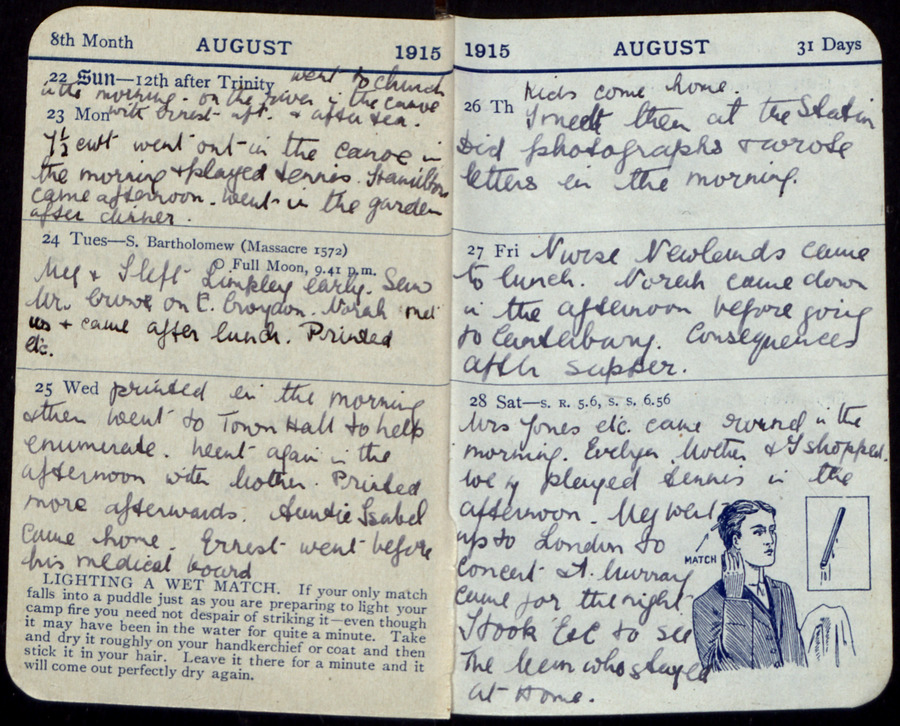 8th Month AUGUST 1915
22 Sun—12th after Trinity went to church
in the morning. on the river in the canoe
23 Mon with Ernest aft. & after tea.
7½ cwt went out in the canoe in
the morning & played tennis. Hamilton
came afternoon. Went in the garden
after dinner.
24 Tues—S. Bartholomew (Massacre 1572)
Full Moon, 9.41 p.m.
Meg & I left Limpley early. Saw
Mr. on E. Croydon. Norah met
us & came after lunch. Printed
etc.
25 Wed printed in the morning
& then went to Town Hall to help
enumerate. Went again in the
afternoon with Mother. Printed
more afterwards. Auntie Isabel
came home. Ernest went before
his medical board
LIGHTING A WET MATCH. If your only match
falls into a puddle just as you are preparing to light your
camp fire you need not despair of striking it—even though
it may have been in the water for quite a minute. Take
and dry it roughly on your handkerchief or coat and then
stick it in your hair. Leave it there for a minute and it
will come out perfectly dry again.
1915 AUGUST 31 Days
Kids come home.
26 Th I meet them at the Station
Did photographs & wrote
letters in the morning.
27 Fri Nurse Newlands came
to lunch. Norah came down
in the afternoon before going
to Canterbury. Consequences
after supper.
28 Sat—S. R. 5.6, S. S. 6.56
Mrs Jones etc. came round in the
morning. Evelyn Mother & I shopped.
We played tennis in the
afternoon. Meg went
up to London to
concert. Murray
came for the night.
I took E & C to see
The Man who stayed
at Home.
MATCH